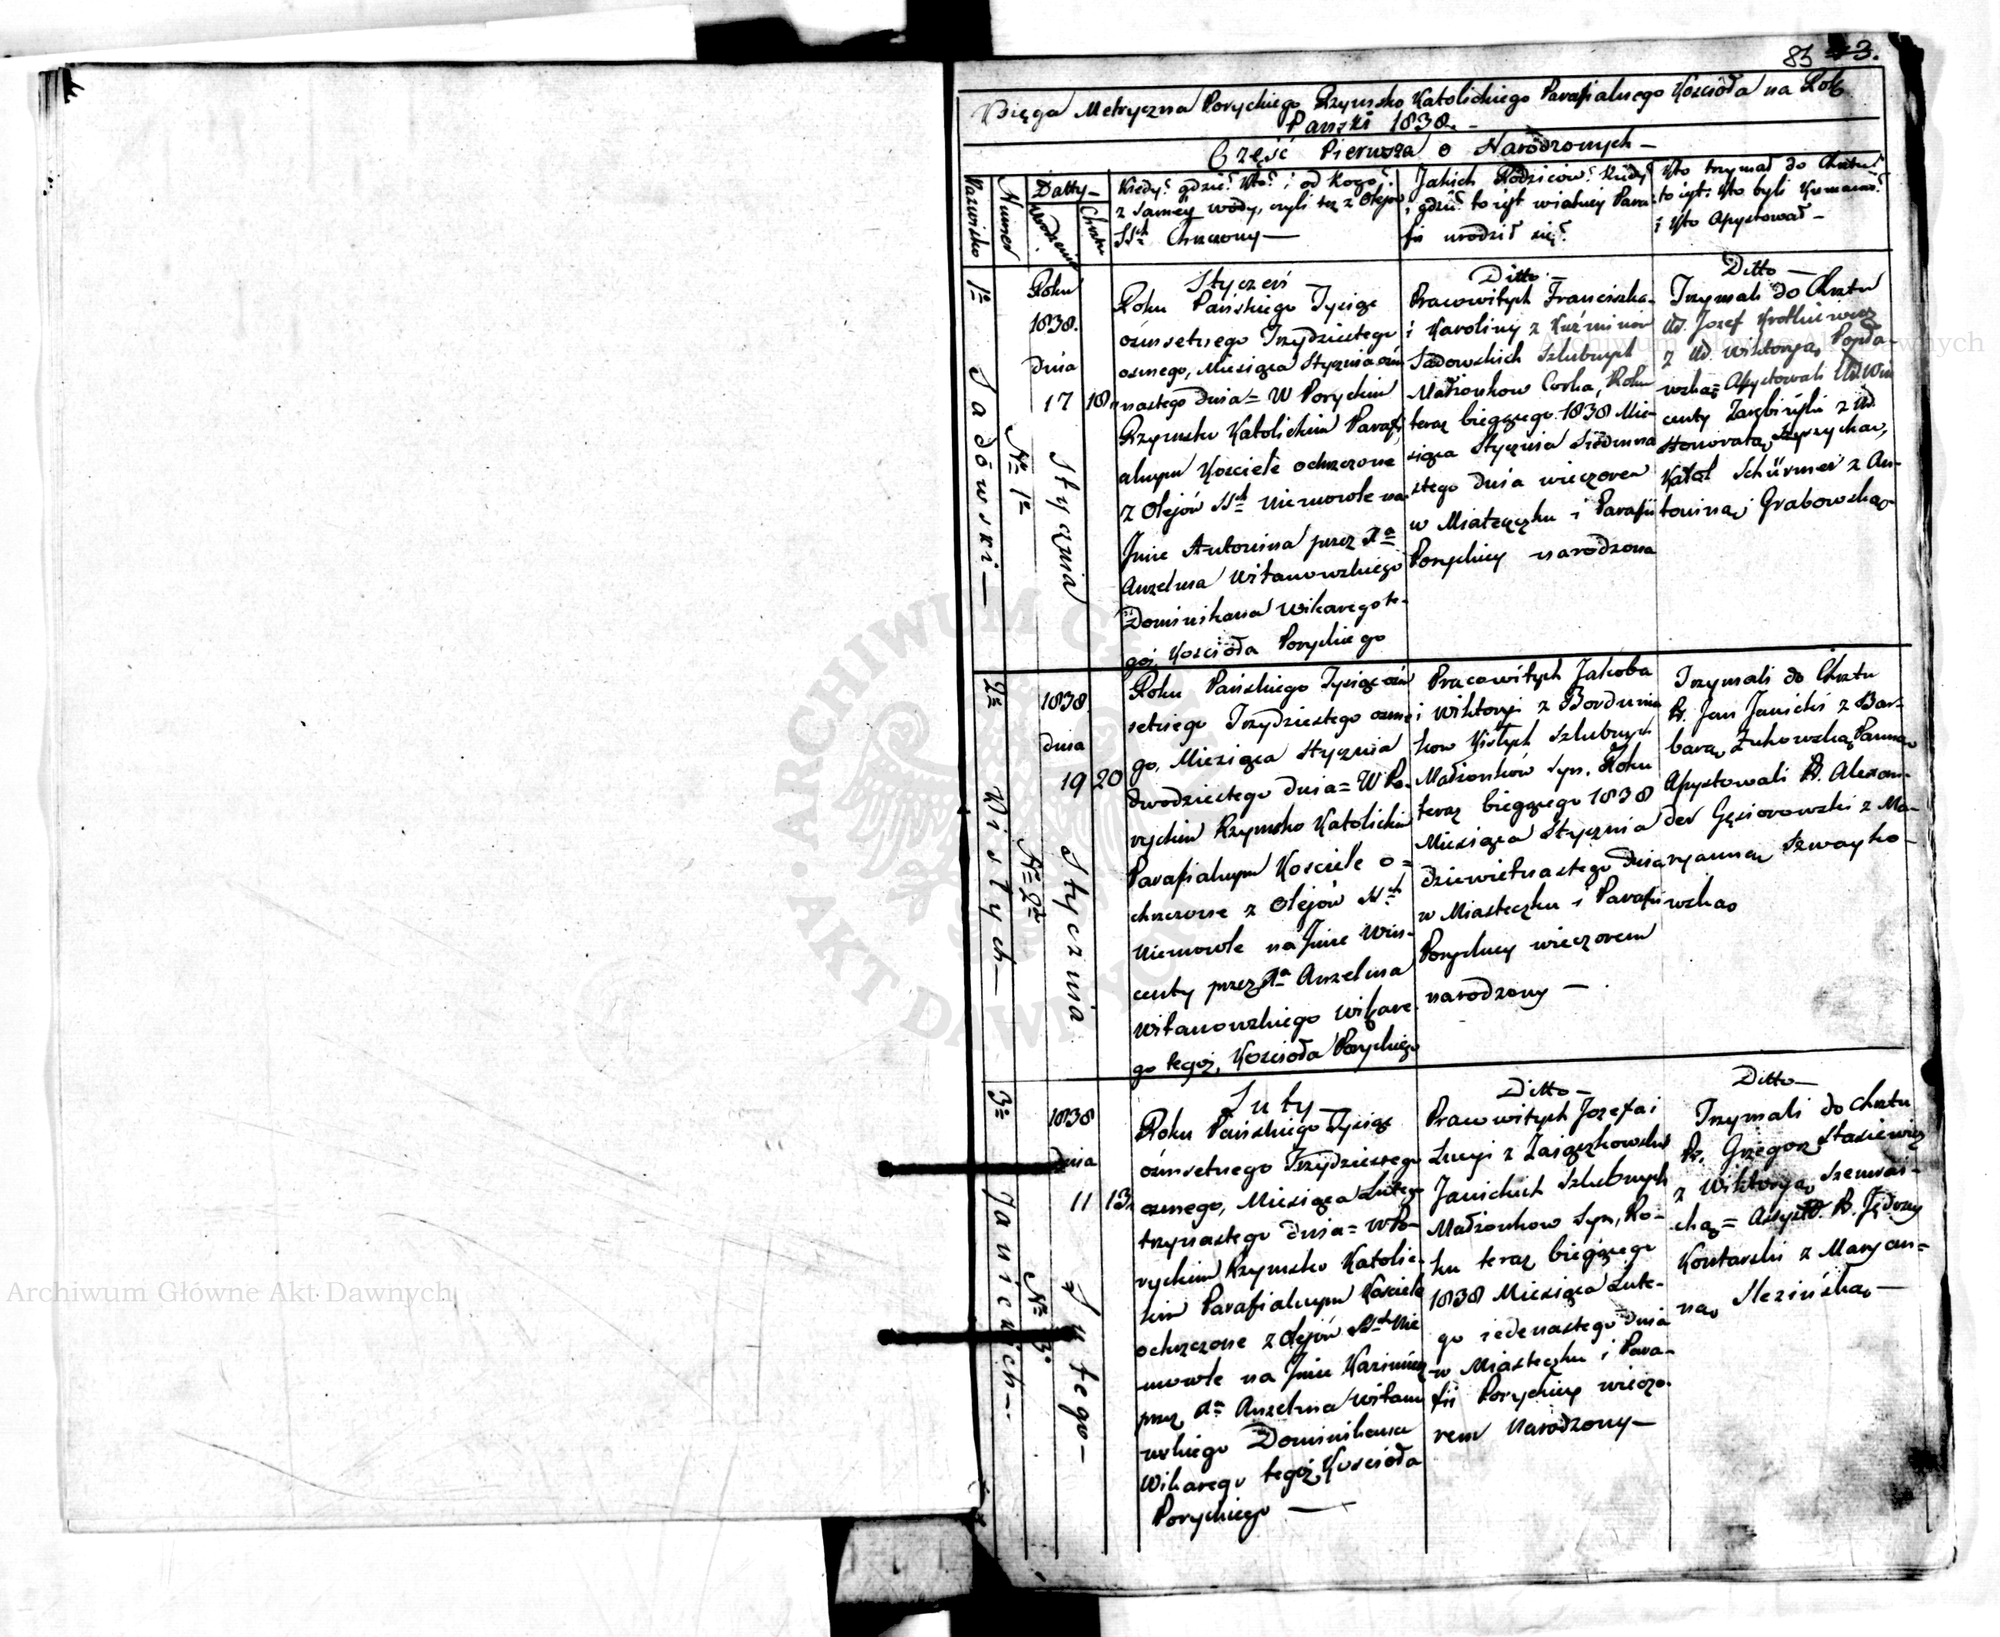 83 43.
Xięga Metryczna Poryckiego Rzymsko Katolickiego Parafialnego Kościoła na Rok
Pański 1838. –
Część Pierwsza o Narodzonych –
Nazwisko
Numer
Datty –
Urodzenia
Chrztu
Kiedy? gdzie? kto? i od kogo?
z samej wody, czyli też z Olejów
SSch Chrzczony —
Jakich Rodziców? kiedy
i gdzie? to jest w jakiej Para-
fii urodził się?
Kto trzymał do Chrztu?
to jest: kto byli Kumami?
i kto Assystował –
1o
Sadowski —
No 1o
Roku
1838.
dnia
17 18
Stycznia
Styczeń
Roku Pańskiego Tysiąc
ośmsetnego Trzydziestego
osmego, Miesiąca Stycznia ośm
nastego dnia = W Poryckim
Rzymsko Katolickim Parafi
alnym Kościele ochrzczone
z Olejów SSch Niemowle na
Imie Antonina przez Xa
Anzelma Witanowskiego
Dominikana Wikarego te-
goż Kościoła Poryckiego
Ditto –
Pracowitych Franciszka
i Karoliny z Kuźminów
Sadowskich Szlubnych
Małżonkow Corka, Roku
teraz bieżącego 1838 Mie-
siąca Stycznia Siedmna
stego dnia wieczorem
w Miasteczku i Parafii
Poryckiey narodzona
Ditto —
Trzymali do Chrztu
W. Jozef Krotkiewicz
z W. Wiktoryą Popła
wską = Assystowali W. Win
centy Zarębiński z W.
Honoratą
Karol Schürmer z An-
toniną Grabowską
2o
Kisłych —
No 2o
1838
dnia
19 20
Stycznia
Roku Pańskiego Tysiąc ośm
setnego Trzydziestego osme
go, Miesiąca Stycznia
dwodziestego dnia = W Po-
ryckim Rzymsko Katolickim
Parafialnym Kościele o=
chrzczone z Olejów SSch
Niemowle na Imie Win-
centy przez Xa Anzelma
Witanowskiego Wikare
go tegoż Kościoła Poryckiego
Pracowitych Jakoba
i Wiktoryi z Bordunia
kow Kisłych Szlubnych
Małżonków Syn, Roku
teraz bieżącego 1838
Miesiąca Stycznia
dziewietnastego dnia
w Miasteczku i Parafii
Poryckiey wieczorem
narodzony —
Trzymali do Chrztu
P. Jan Janicki z Bar-
barą Żukowską Panną
Assystowali P. Alexan-
der Gęsiorowski z Ma-
ryanną Szwayko-
wską
3o
Janickich —
No 3o
1838
dnia
11 13
Lutego –
Luty –
Roku Pańskiego Tysiąc
ośmsetnego Trzydziestego
osmego, Miesiąca Lutego
trzynastego dnia = W Po-
ryckim Rzymsko Katolic-
kim Parafialnym Kościele
ochrzczone z Olejów SSch Nie
mowle na Imie Kazimierz
przez Xa Anzelma Witano
wskiego Dominikana
Wikarego tegoż Kościoła
Poryckiego —
Ditto —
Pracowitych Jozefa i
Lucyi z Zaiączkowskich
Janickich Szlubnych
Małżonkow Syn, Ro-
ku teraz bieżącego
1838 Miesiąca Lute-
go iedenastego dnia
w Miasteczku i Para-
fii Poryckiey wieczo-
rem Narodzony —
Ditto —
Trzymali do Chrztu
P. Grzegorz Stasiewicz
z Wiktoryą
= Assyst. P. Jędrzey
Kontarski z Maryan=
ną Slezińską —
ARCHIWUM GŁÓWNE AKT DAWNYCH
Archiwum Główne Akt Dawnych
Archiwum Główne Akt Dawnych